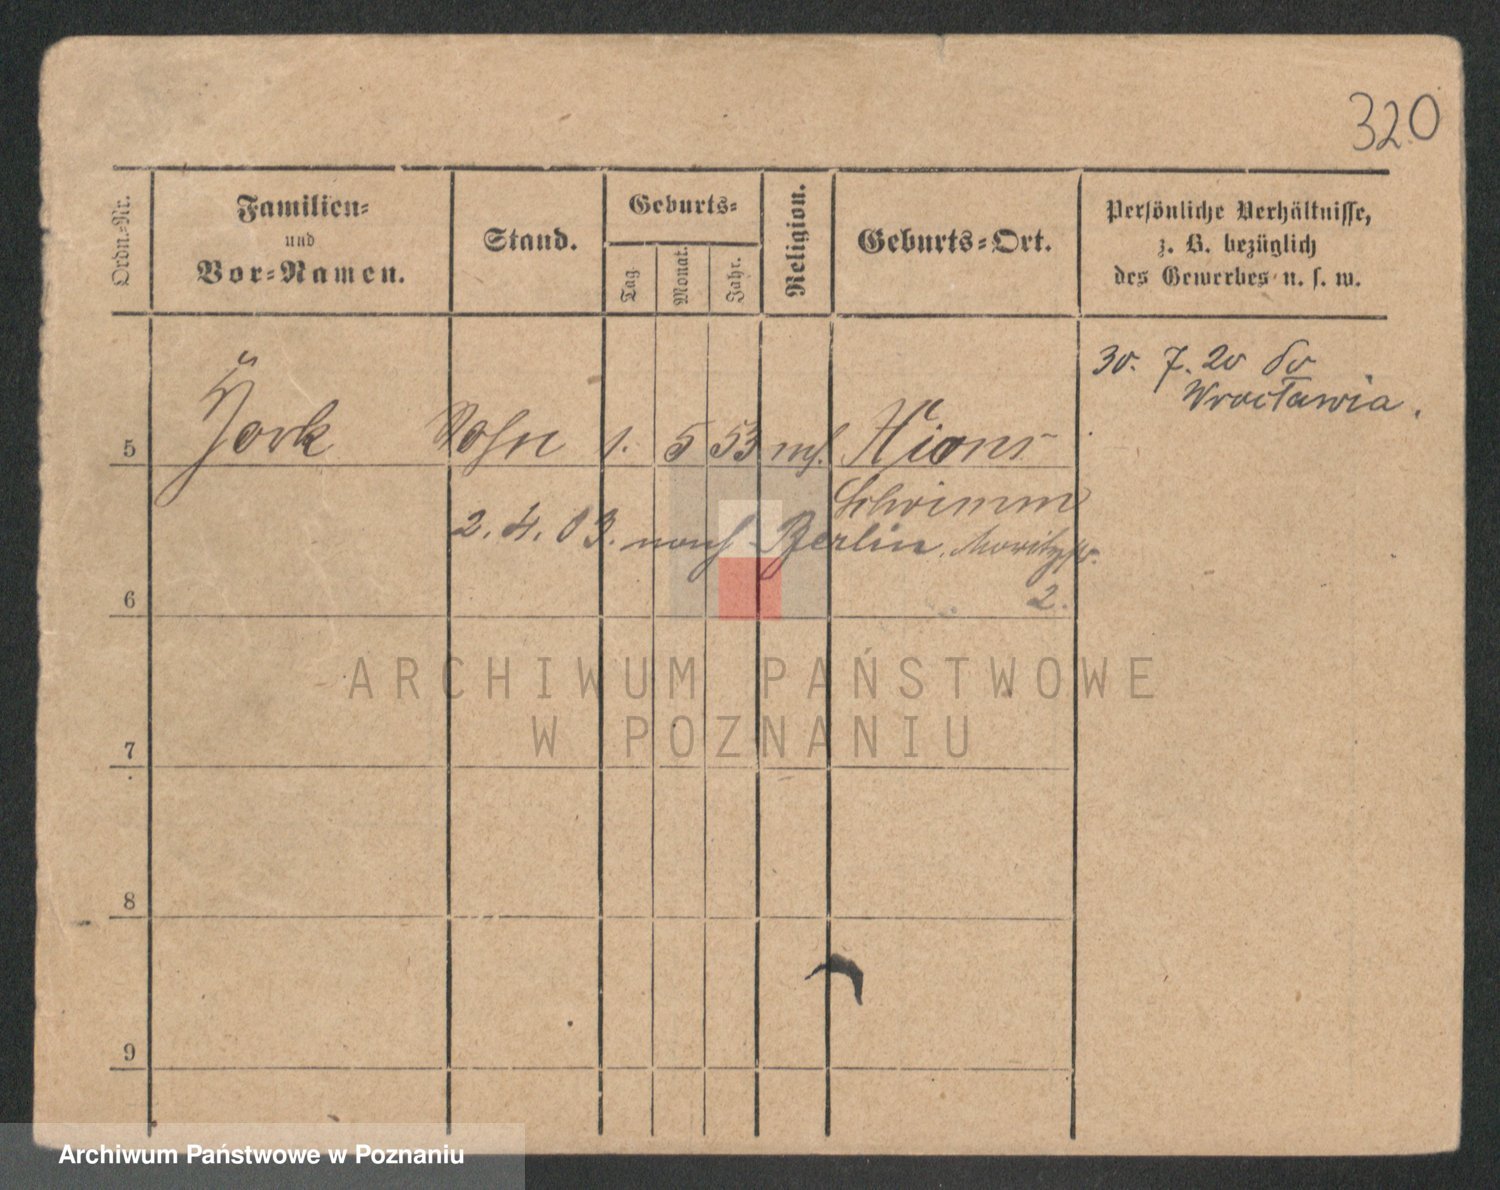 320
Ordn.-Nr.
Familien-
und
Vor-Namen.
Stand.
Geburts-
Tag.
Monat.
Jahr.
Religion.
Geburts-Ort.
Persönliche Verhältnisse,
z. B. bezüglich
des Gewerbes u. s. w.
30. 7. 20 do
Wrocławia.
5 York Sohn 1. 5 53 Xions
Schrimm
2. 4. 03. nach Berlin, Moritzstr.
2.
6
7
8
9
ARCHIWUM PAŃSTWOWE
W POZNANIU
Archiwum Państwowe w Poznaniu